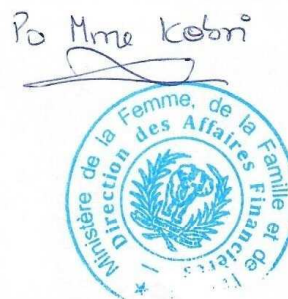 Po Mme Kobri
Ministère de la Femme, de la Famille et de l'
Direction des Affaires Financières